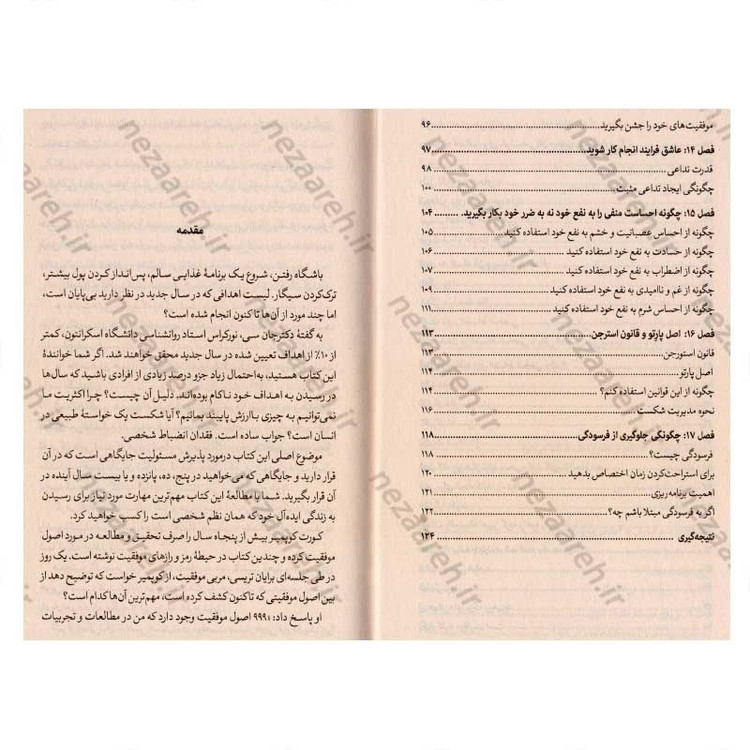 موفقیت‌های خود را جشن بگیرید ........ ۹۶
فصل ۱۴: عاشق فرایند انجام کار شوید ........ ۹۷
قدرت تداعی ........ ۹۸
چگونگی ایجاد تداعی مثبت ........ ۱۰۰
فصل ۱۵: چگونه احساست منفی را به نفع خود نه به ضرر خود بکار بگیرید. ........ ۱۰۴
چگونه از احساس عصبانیت و خشم به نفع خود استفاده کنید ........ ۱۰۵
چگونه از حسادت به نفع خود استفاده کنید ........ ۱۰۶
چگونه از اضطراب به نفع خود استفاده کنید ........ ۱۰۷
چگونه از غم و ناامیدی به نفع خود استفاده کنید ........ ۱۰۹
چگونه از احساس شرم به نفع خود استفاده کنید ........ ۱۱۱
فصل ۱۶: اصل پارتو و قانون استرجن ........ ۱۱۳
قانون استورجن ........ ۱۱۳
اصل پارتو ........ ۱۱۴
چگونه از این قوانین استفاده کنم؟ ........ ۱۱۴
نحوه مدیریت شکست ........ ۱۱۶
فصل ۱۷: چگونگی جلوگیری از فرسودگی ........ ۱۱۸
فرسودگی چیست؟ ........ ۱۱۸
برای استراحت‌کردن زمان اختصاص بدهید ........ ۱۲۰
اهمیت برنامه ریزی ........ ۱۲۱
اگر به فرسودگی مبتلا باشم چه؟ ........ ۱۲۲
نتیجه‌گیری ........ ۱۲۴
مقدمه
باشگاه رفتن، شروع یک برنامهٔ غذایی سالم، پس‌انداز کردن پول بیشتر،
ترک‌کردن سیگار. لیست اهدافی که در سال جدید در نظر دارید بی‌پایان است،
اما چند مورد از آن‌ها تاکنون انجام شده‌اند.
به گفتهٔ دکتر جان سی، نورکراس استاد روانشناسی دانشگاه اسکرانتون، کمتر
از ۱۰٪ از اهداف تعیین شده در سال جدید محقق خواهند شد. اگر شما خوانندهٔ
این کتاب هستید، به‌احتمال زیاد جزو درصد زیادی از افرادی باشید که سال‌ها
در رسیدن به اهداف خود ناکام بوده‌اند. دلیل آن چیست؟ چرا اکثریت ما
نمی‌توانیم به چیزی باارزش پایبند بمانیم؟ آیا شکست یک خواستهٔ طبیعی در
انسان است؟ جواب ساده است. فقدان انضباط شخصی.
موضوع اصلی این کتاب درمورد پذیرش مسئولیت جایگاهی است که در آن
قرار دارید و جایگاهی که می‌خواهید در پنج، ده، پانزده و یا بیست سال آینده در
آن قرار بگیرید. شما با مطالعهٔ این کتاب مهم‌ترین مهارت مورد نیاز برای رسیدن
به زندگی ایده‌آل خود که همان نظم شخصی است را کسب خواهید کرد.
کورت کوپمیر بیش از پنجاه سال را صرف تحقیق و مطالعه در مورد اصول
موفقیت کرده و چندین کتاب در حیطهٔ رمز و رازهای موفقیت نوشته است. یک روز
در طی جلسه‌ای برایان تریسی، مربی موفقیت، از کوپمیر خواست که توضیح دهد از
بین اصول موفقیتی که تاکنون کشف کرده است، مهم‌ترین آن‌ها کدام است؟
او پاسخ داد: ۹۹۹ اصول موفقیت وجود دارد که من در مطالعات و تجربیات
nezaareh.ir